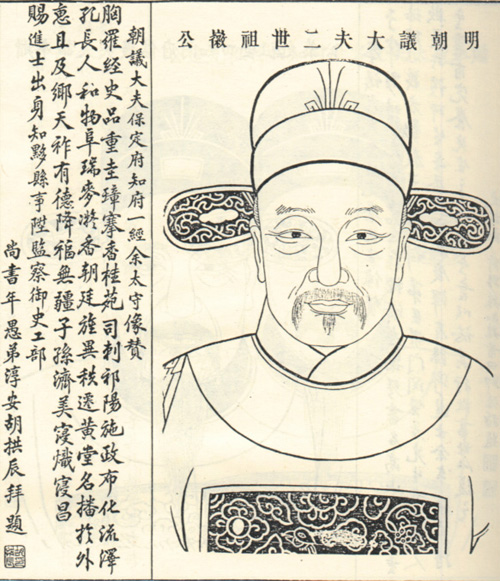 明朝議大夫二世祖公
朝議大夫保定府知府一經余太守像贊
胸羅經史品重圭璋搴香桂苑司刺祁陽施政布化流澤
孔長人和物阜瑞麥凝香朝廷旌異秩遷黃堂名播於外
惠且及鄉天祚有德降福無疆子孫濟美寖熾寖昌
賜進士出身知黟縣事陞監察御史工部
尚書年愚弟淳安胡拱辰拜題